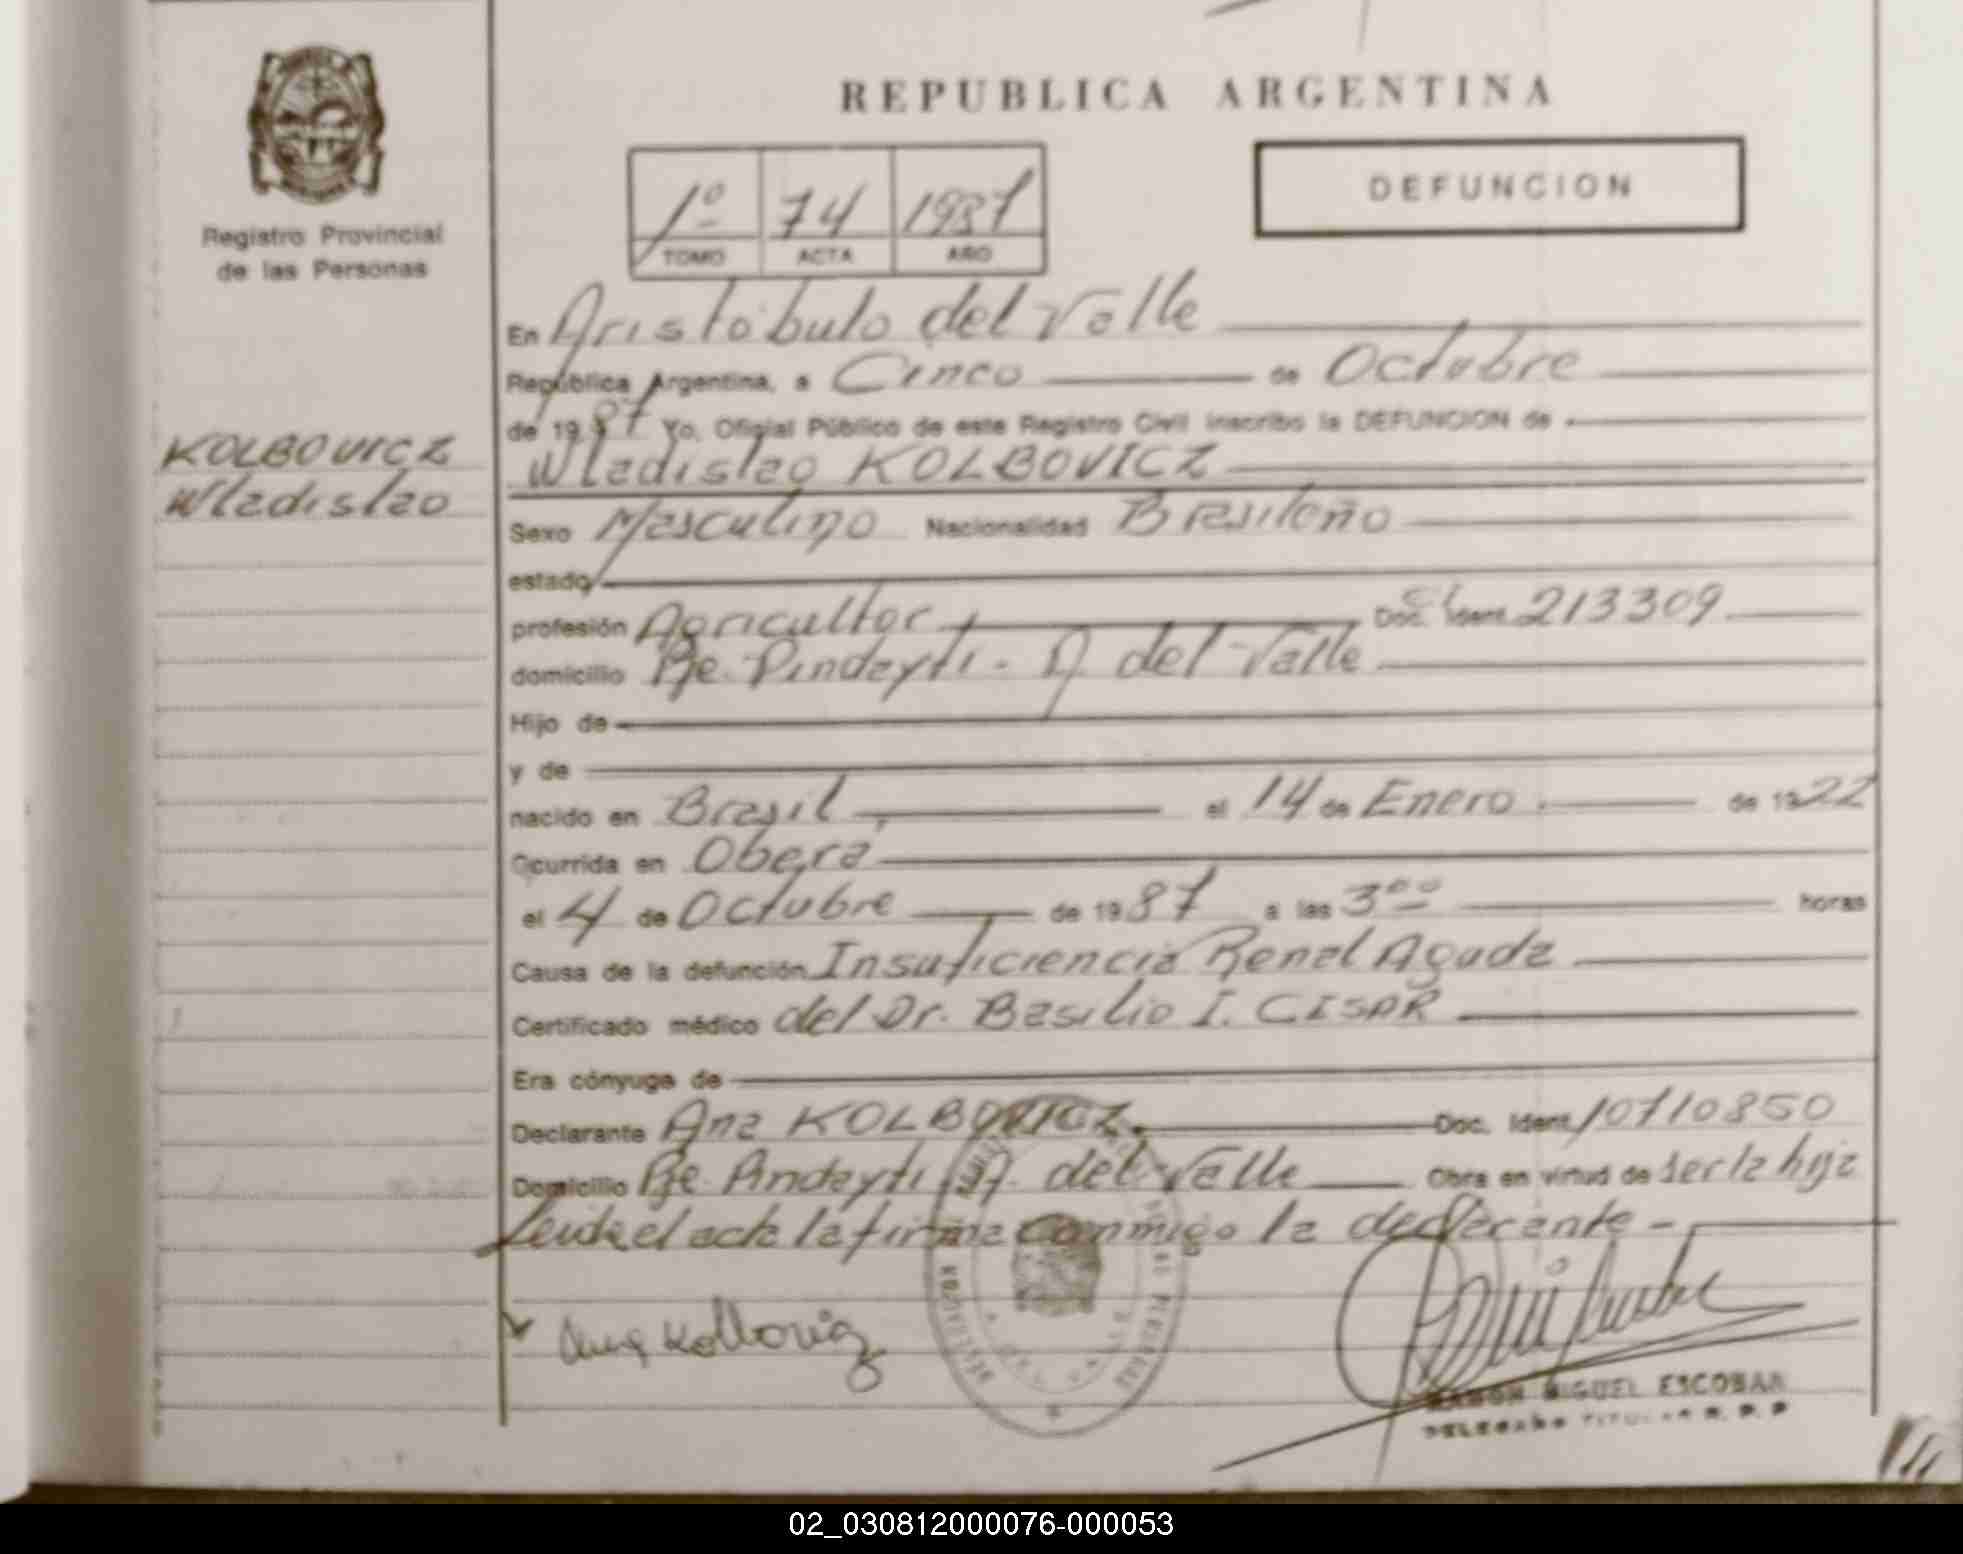 REPUBLICA ARGENTINA
Registro Provincial
de las Personas
1º 74 1987
TOMO ACTA AÑO
DEFUNCION
En Aristóbulo del Valle
República Argentina, a Cinco de Octubre
de 1987 Yo, Oficial Público de este Registro Civil inscribo la DEFUNCION de
KOLBOVICZ
Wladislao
Wladislao KOLBOVICZ
Sexo Masculino Nacionalidad Brasileño
estado
profesión Agricultor Doc. Ident. 213309
domicilio Pje. Pindayti - A del Valle
Hijo de
y de
nacido en Brasil, el 14 de Enero de 1922
Ocurrida en Oberá
el 4 de Octubre de 1987 a las 3ºº horas
Causa de la defunción Insuficiencia Renal Aguda
Certificado médico del Dr. Basilio I. CISAR
Era cónyuge de
Declarante Ana KOLBOVICZ Doc. Ident. 10710850
Domicilio Pje. Pindayti A. del Valle Obra en virtud de ser la hija
Leida el acta la firma conmigo la declarante -
Ana Kolbovicz
RAMON MIGUEL ESCOBAR
DELEGADO TITULAR R. P. P
02_030812000076-000053